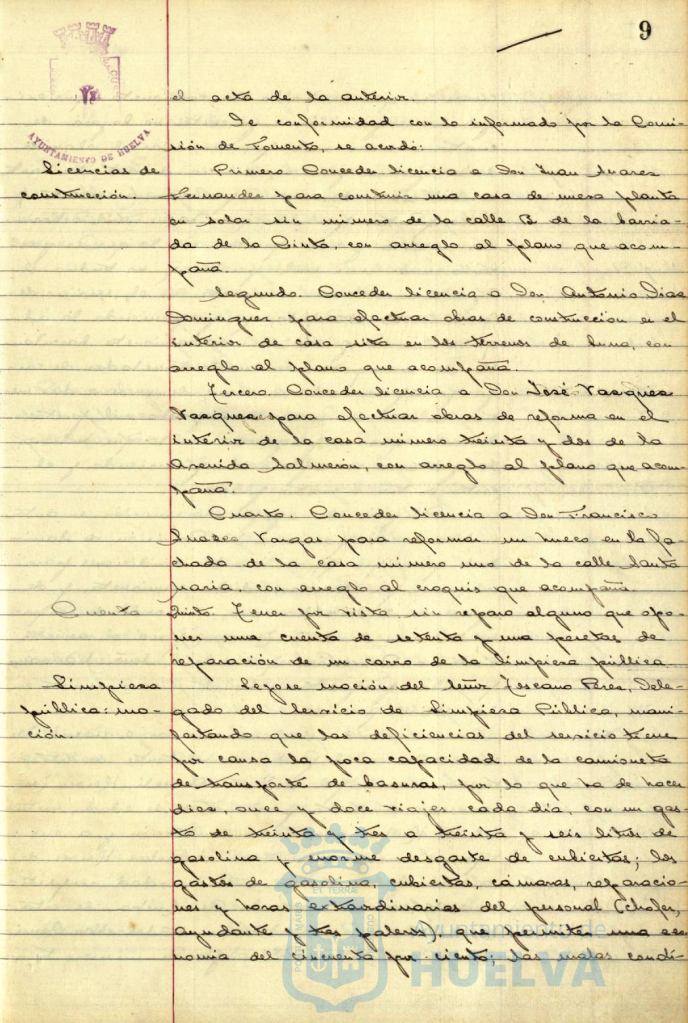 9
AYUNTAMIENTO DE HUELVA
el acta de la anterior.
De conformidad con lo informado por la Comi-
sión de Fomento, se acordó:
Licencias de
construcción.
Primero. Conceder licencia a Don Juan Suarez
Fernandez para construir una casa de nueva planta
en solar sin número de la calle B de la barria-
da de la Cinta, con arreglo al plano que acom-
paña.
Segundo. Conceder licencia a Don Antonio Diaz
Dominguez para efectuar obras de construcción en el
interior de casa sita en los terrenos de, con
arreglo al plano que acompaña.
Tercero. Conceder licencia a Don José Vazquez
Vazquez para efectuar obras de reforma en el
interior de la casa número treinta y dos de la
Avenida Salmerón, con arreglo al plano que acom-
paña.
Cuarto. Conceder licencia a Don Francisco
Vargas para reformar un hueco en la fa-
chada de la casa número uno de la calle Santa
Maria, con arreglo al croquis que acompaña.
Cuenta
Quinto. Tener por vista, sin reparo alguno que opo-
ner una cuenta de setenta y una pesetas de
reparación de un carro de la limpieza pública
Limpieza
pública: mo-
ción.
Leyose moción del Señor Toscano Perez, Dele-
gado del Servicio de Limpieza Pública, mani-
festando que las deficiencias del servicio tiene
por causa la poca capacidad de la camioneta
de transporte de basuras, por lo que ha de hacer
diez, once y doce viajes cada día, con un gas-
to de treinta y tres a treinta y seis litros de
gasolina y enorme desgaste de cubiertas; los
gastos de gasolina, cubiertas, cámaras, reparacio-
nes y horas extraordinarias del personal (chofer,
ayudante y tres paleros), que permiten una eco-
nomia del cincuenta por ciento; las malas condi-
Ayuntamiento de
HUELVA